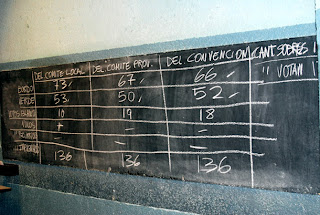 DEL COMITE LOCAL DEL COMITE PROV. DEL CONVENCION CANT. SOBRES
BORDO 73,- 67,- 66,- " VOTAN
VERDE 53,- 50,- 52,-
10 19 18
- - -
- -
136 136 136